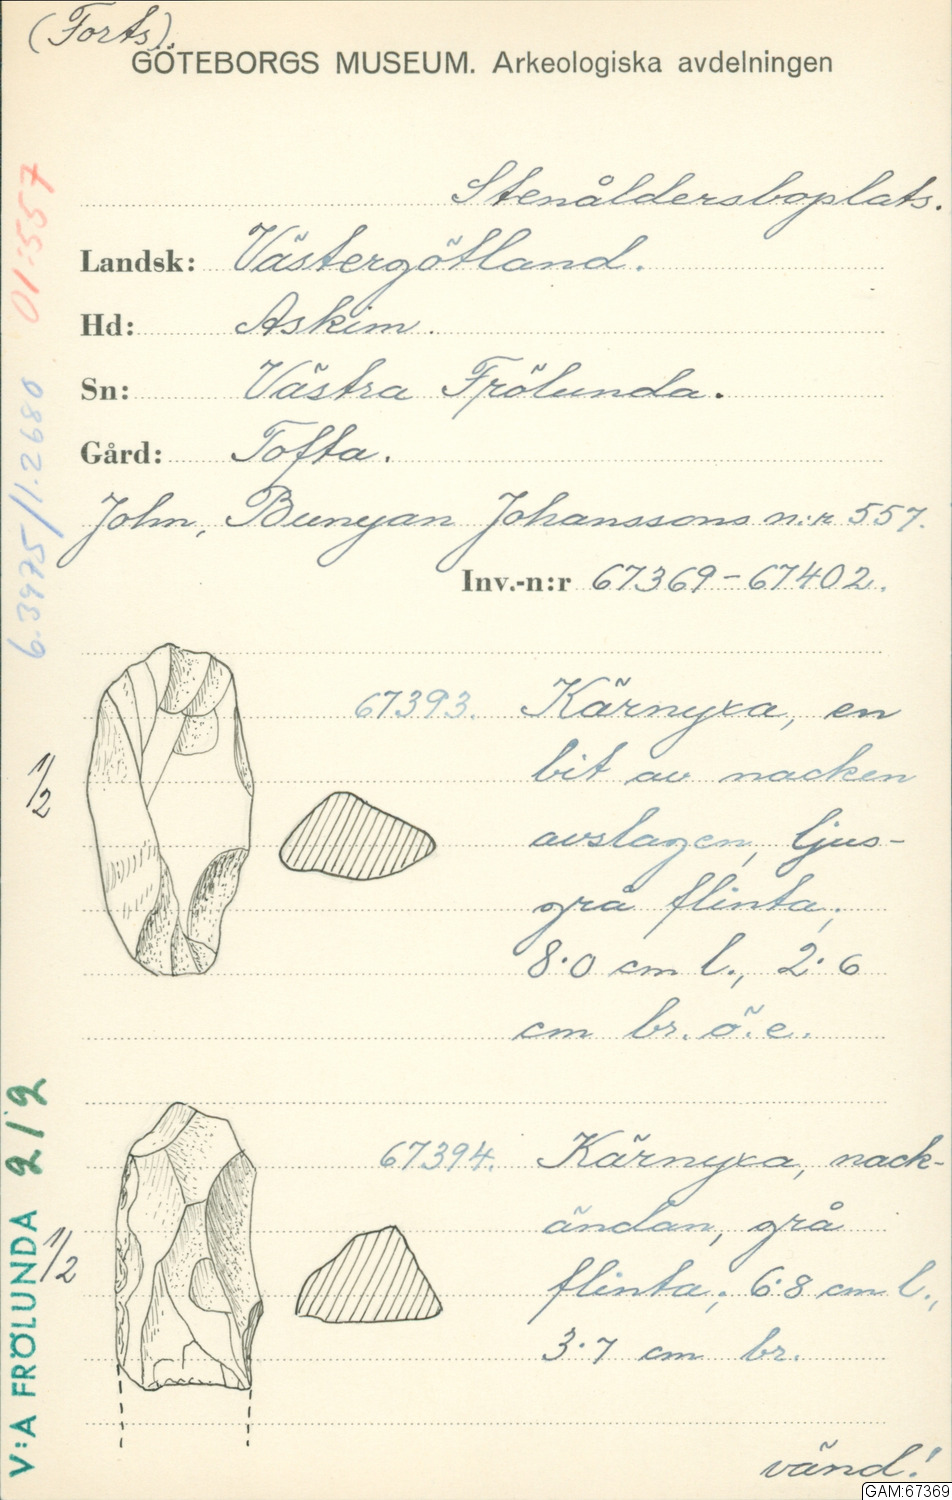 (Forts).
GÖTEBORGS MUSEUM. Arkeologiska avdelningen
Stenåldersboplats.
Landsk: Västergötland.
Hd: Askim.
Sn: Västra Frölunda.
Gård: Tofta.
John, Bunyan Johanssons n:r 557.
Inv.-n:r 67369-67402.
67393. Kärnyxa, en
bit av nacken
avslagen, ljus-
grå flinta;
8.0 cm l., 2.6
cm br. ö. e.
1/2
67394. Kärnyxa, nack-
ändan, grå
flinta; 6.8 cm l.,
3.7 cm br.
1/2
vänd!
01:557
6.3975/1.2680
V:A FRÖLUNDA 212
GAM:67369